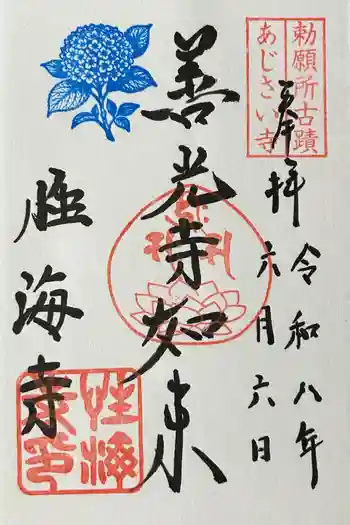 勅願所古蹟
あじさい寺
奉拝
令和八年
六月六日
善光寺如来
性海寺
性海